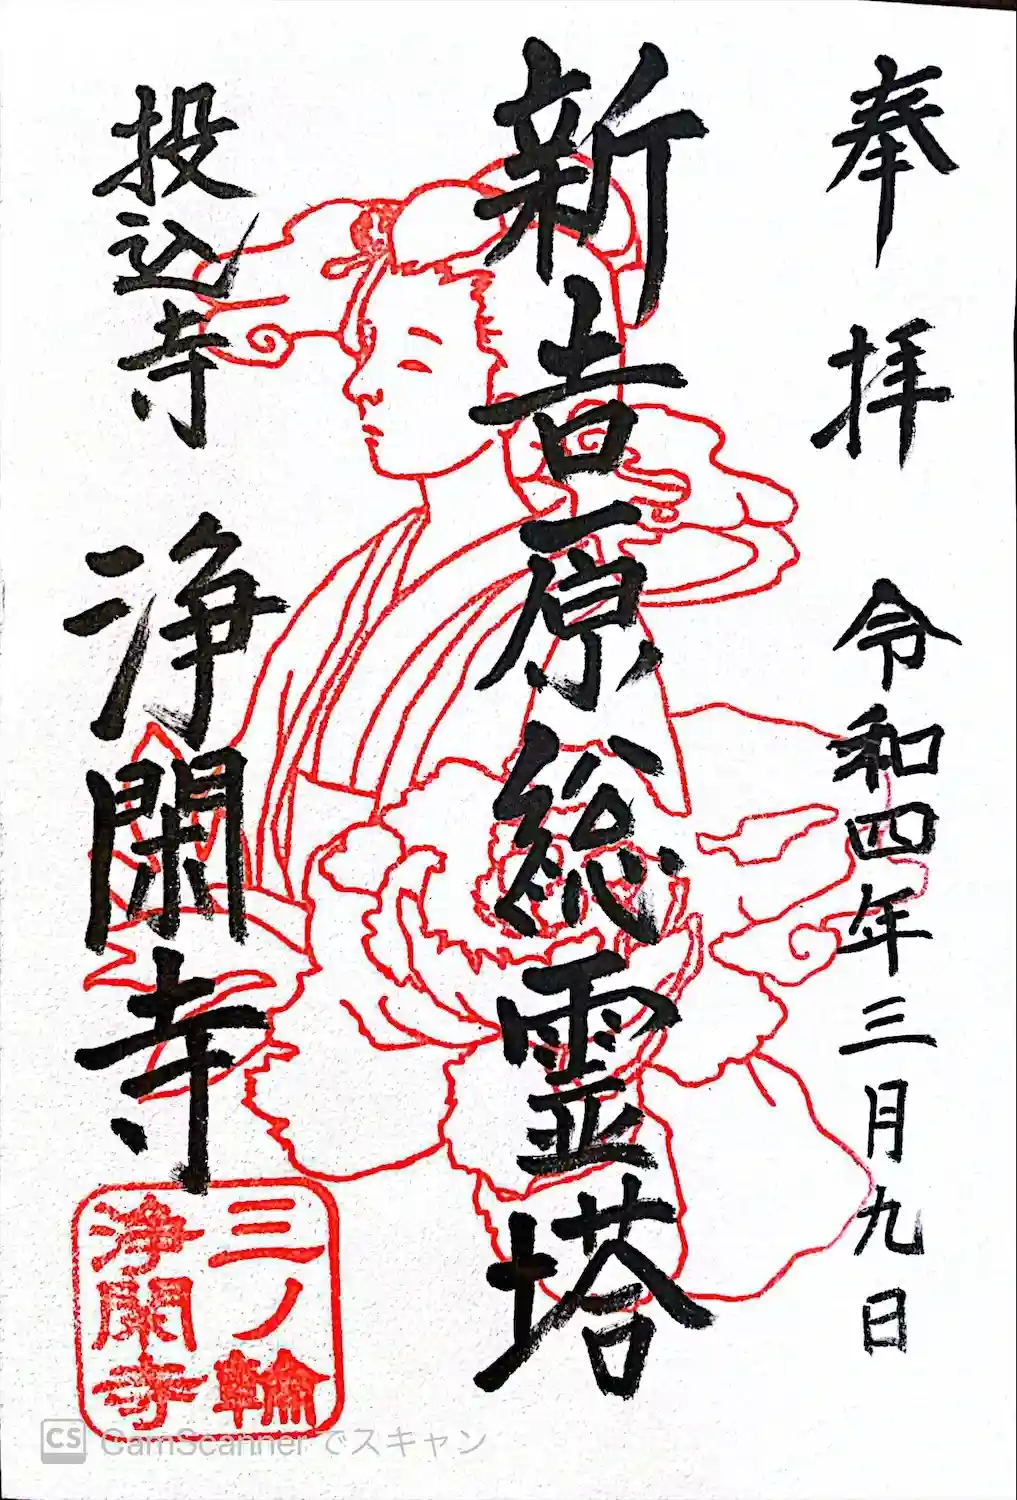 奉拝 令和四年三月九日
新吉原総霊塔
投込寺 浄閑寺
三ノ輪
浄閑寺
CS CamScanner でスキャン